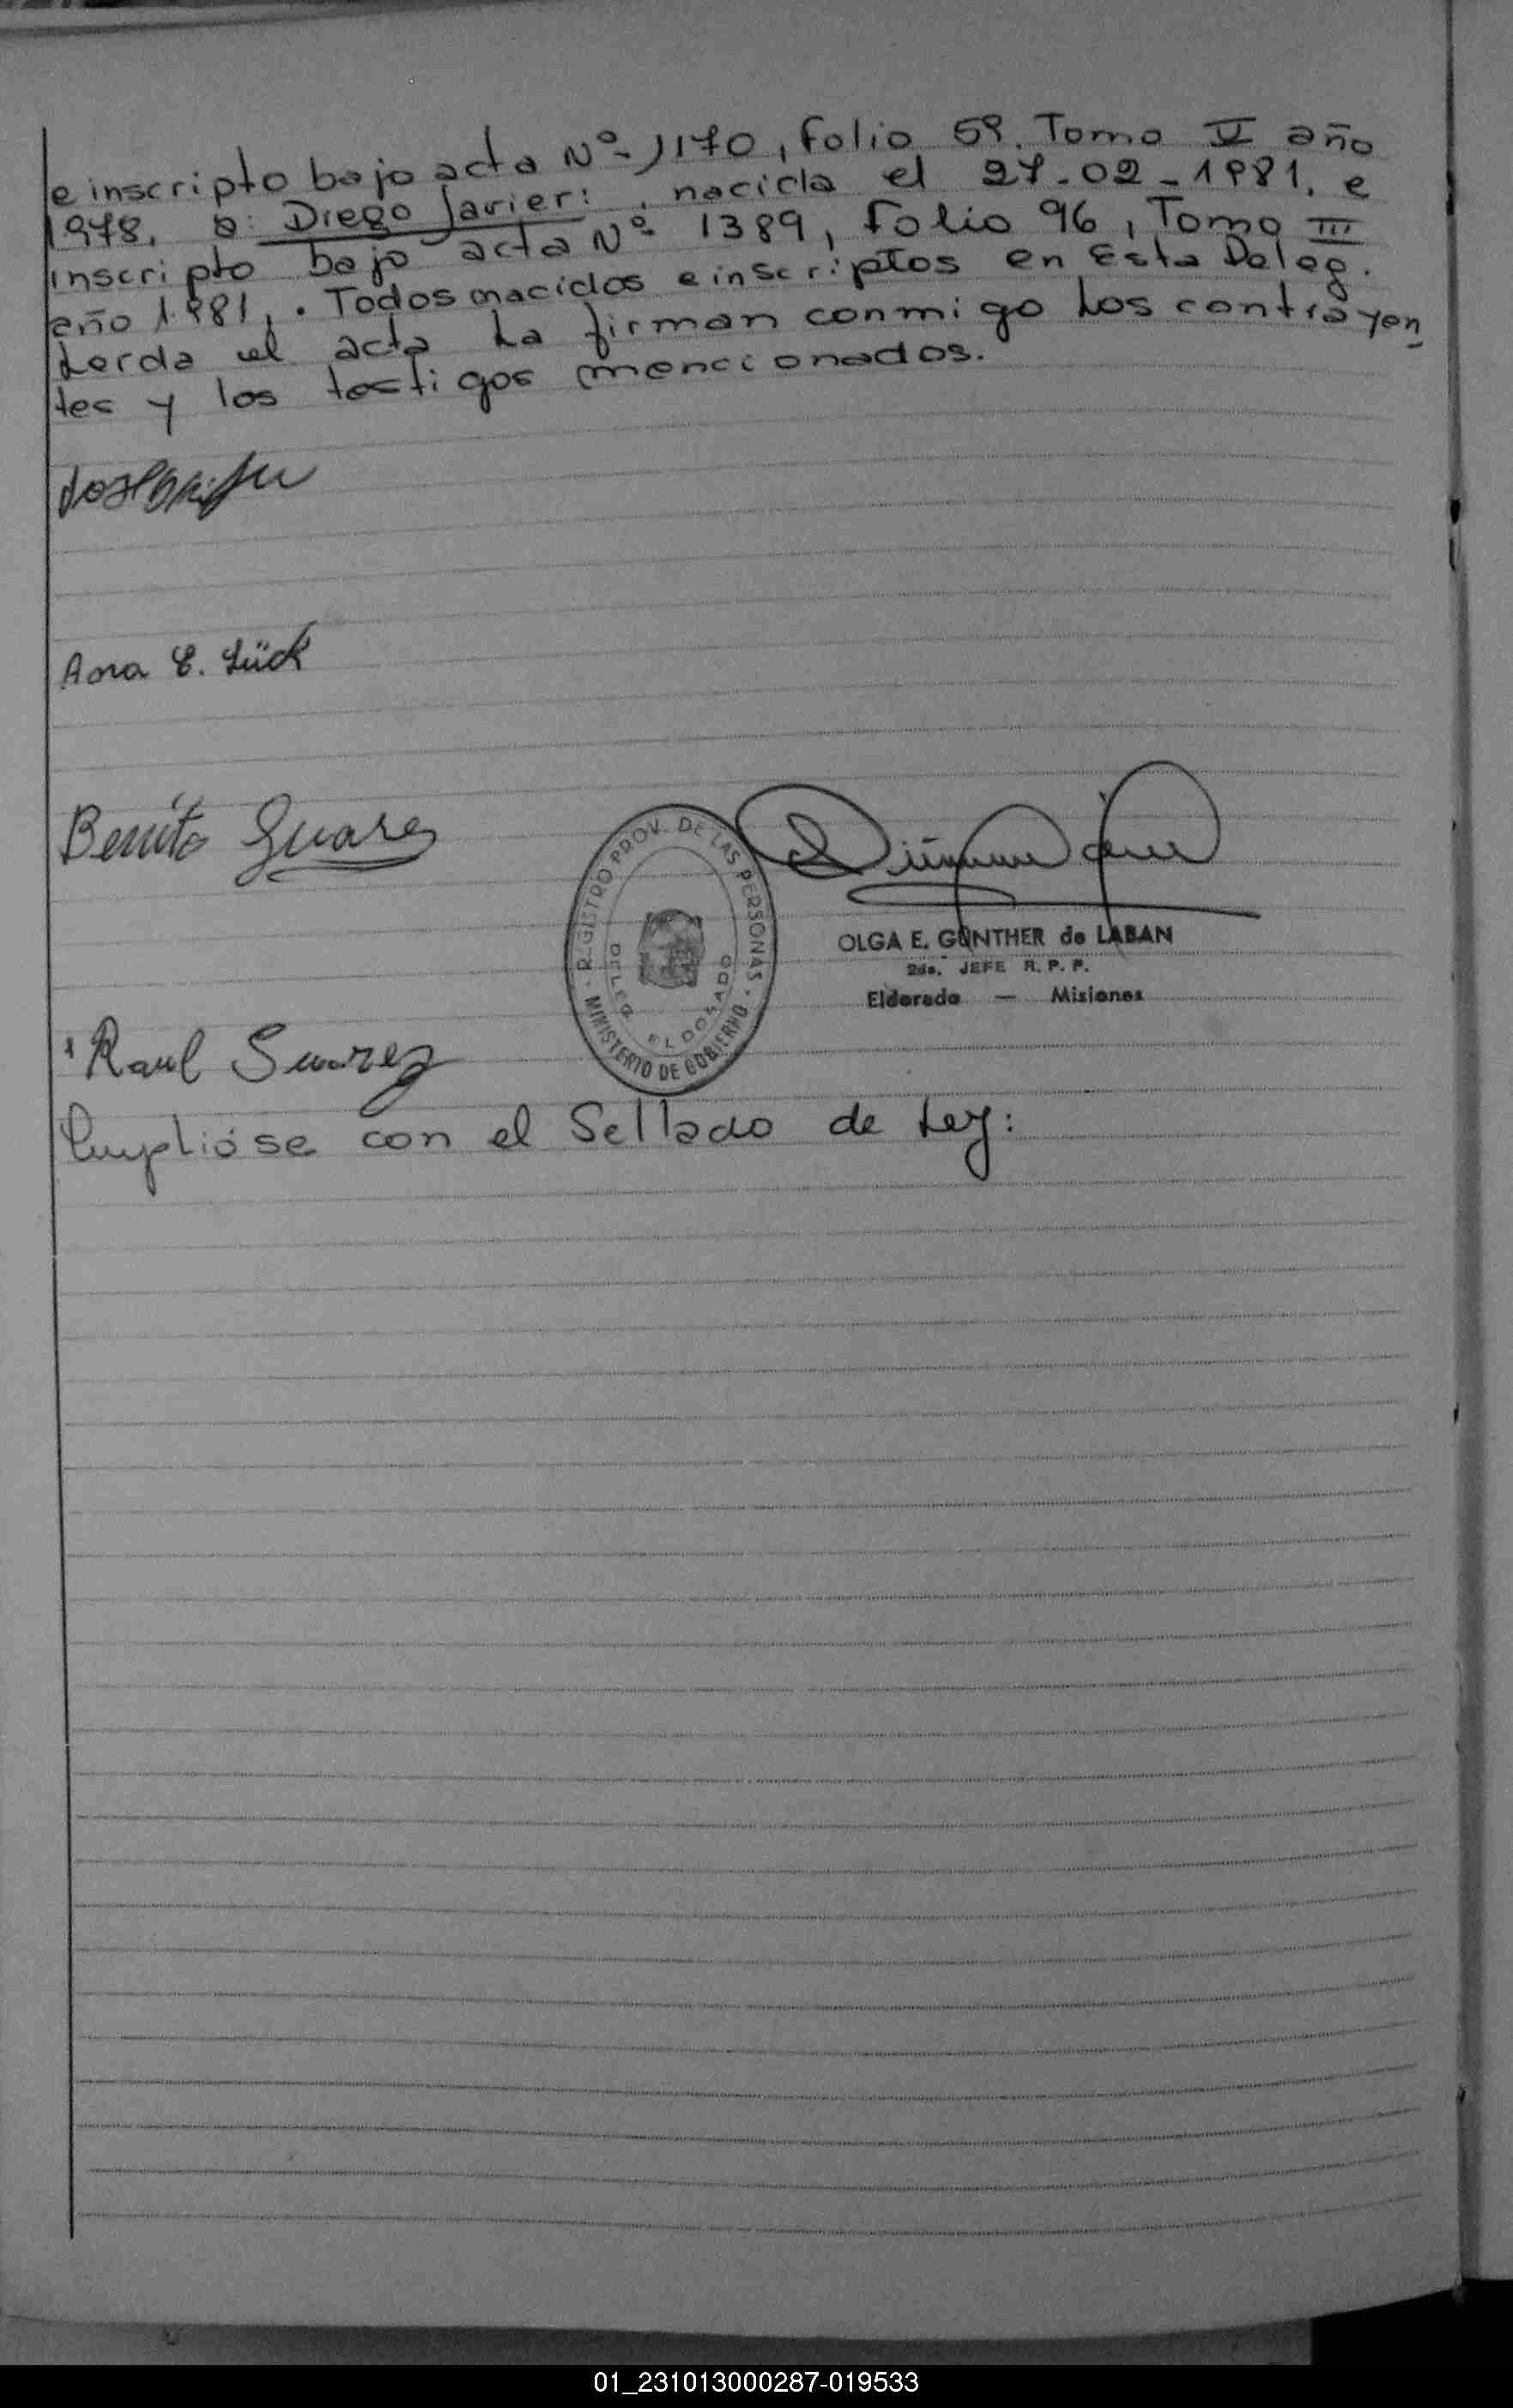 e inscripto bajo acta Nº- 1170, Folio 59. Tomo V año
1978. a: Diego Javier: , nacido el 27-02-1981. e
inscripto bajo acta Nº 1389, Folio 96, Tomo III
año 1981, . Todos nacidos e inscriptos en Esta Deleg.
Lerda el acta La firman conmigo Los contrayen
tes y los testigos mencionados.
Ana E. Lück
Benito Suarez
REGISTRO PROV. DE LAS PERSONAS
DELEG. ELDORADO
MINISTERIO DE GOBIERNO
OLGA E. GÜNTHER de LABAN
2da. JEFE R. P. P.
Eldorado — Misiones
Raul Suarez
Cumplióse con el Sellado de Ley:
01_231013000287-019533